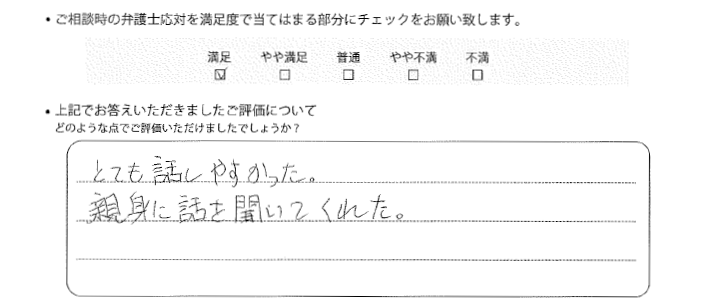 • ご相談時の弁護士応対を満足度で当てはまる部分にチェックをお願い致します。
満足 やや満足 普通 やや不満 不満
☑ ☐ ☐ ☐ ☐
• 上記でお答えいただきましたご評価について
どのような点でご評価いただけましたでしょうか?
とても話しやすかった。
親身に話を聞いてくれた。